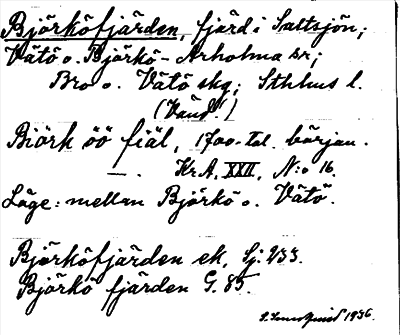 Björköfjärden, fjärd i Saltsjön;
Vätö o. Björkö-Arholma sr;
Bro o. Vätö skg; Sthlms l.
Björk öö fiäl, 1700-tal. början.
—. Kr.A. XXII, N:o 16.
Läge: mellan Björkö o. Vätö.
Björköfjärden ek, Sj. 233.
Björkö fjärden G. 85.
1936.